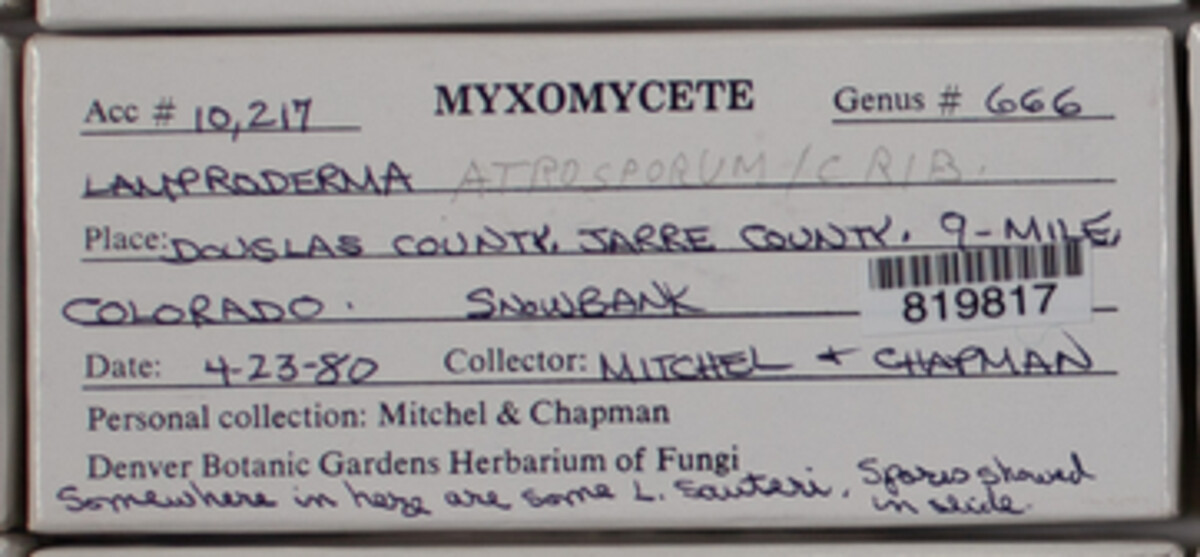 Acc # 10,217 MYXOMYCETE Genus # 666
LAMPRODERMA ATROSPORUM/CRIB.
Place: DOUGLAS COUNTY, JARRE COUNTY. 9-MILE,
COLORADO. SNOWBANK
819817
Date: 4-23-80 Collector: MITCHEL + CHAPMAN
Personal collection: Mitchel & Chapman
Denver Botanic Gardens Herbarium of Fungi
Somewhere in here are some L. sauteri. Spores showed
in slide.